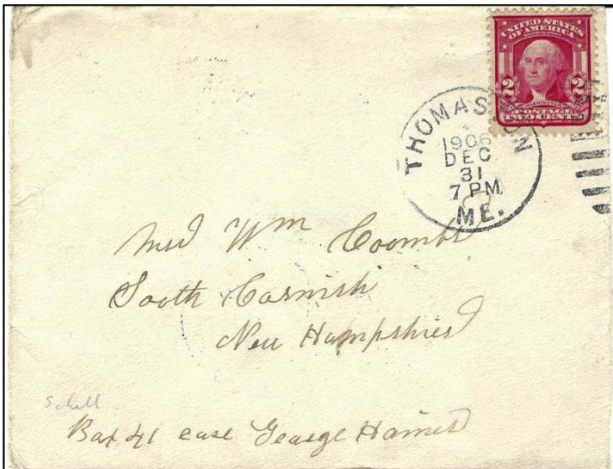 UNITED STATES
OF AMERICA
2 2
POSTAGE
TWO CENTS
THOMASTON
1906
DEC
31
7 PM
ME.
Mrs Wm Coombs
South Cornish
New Hampshire
Schell
Box 41 care George Haines